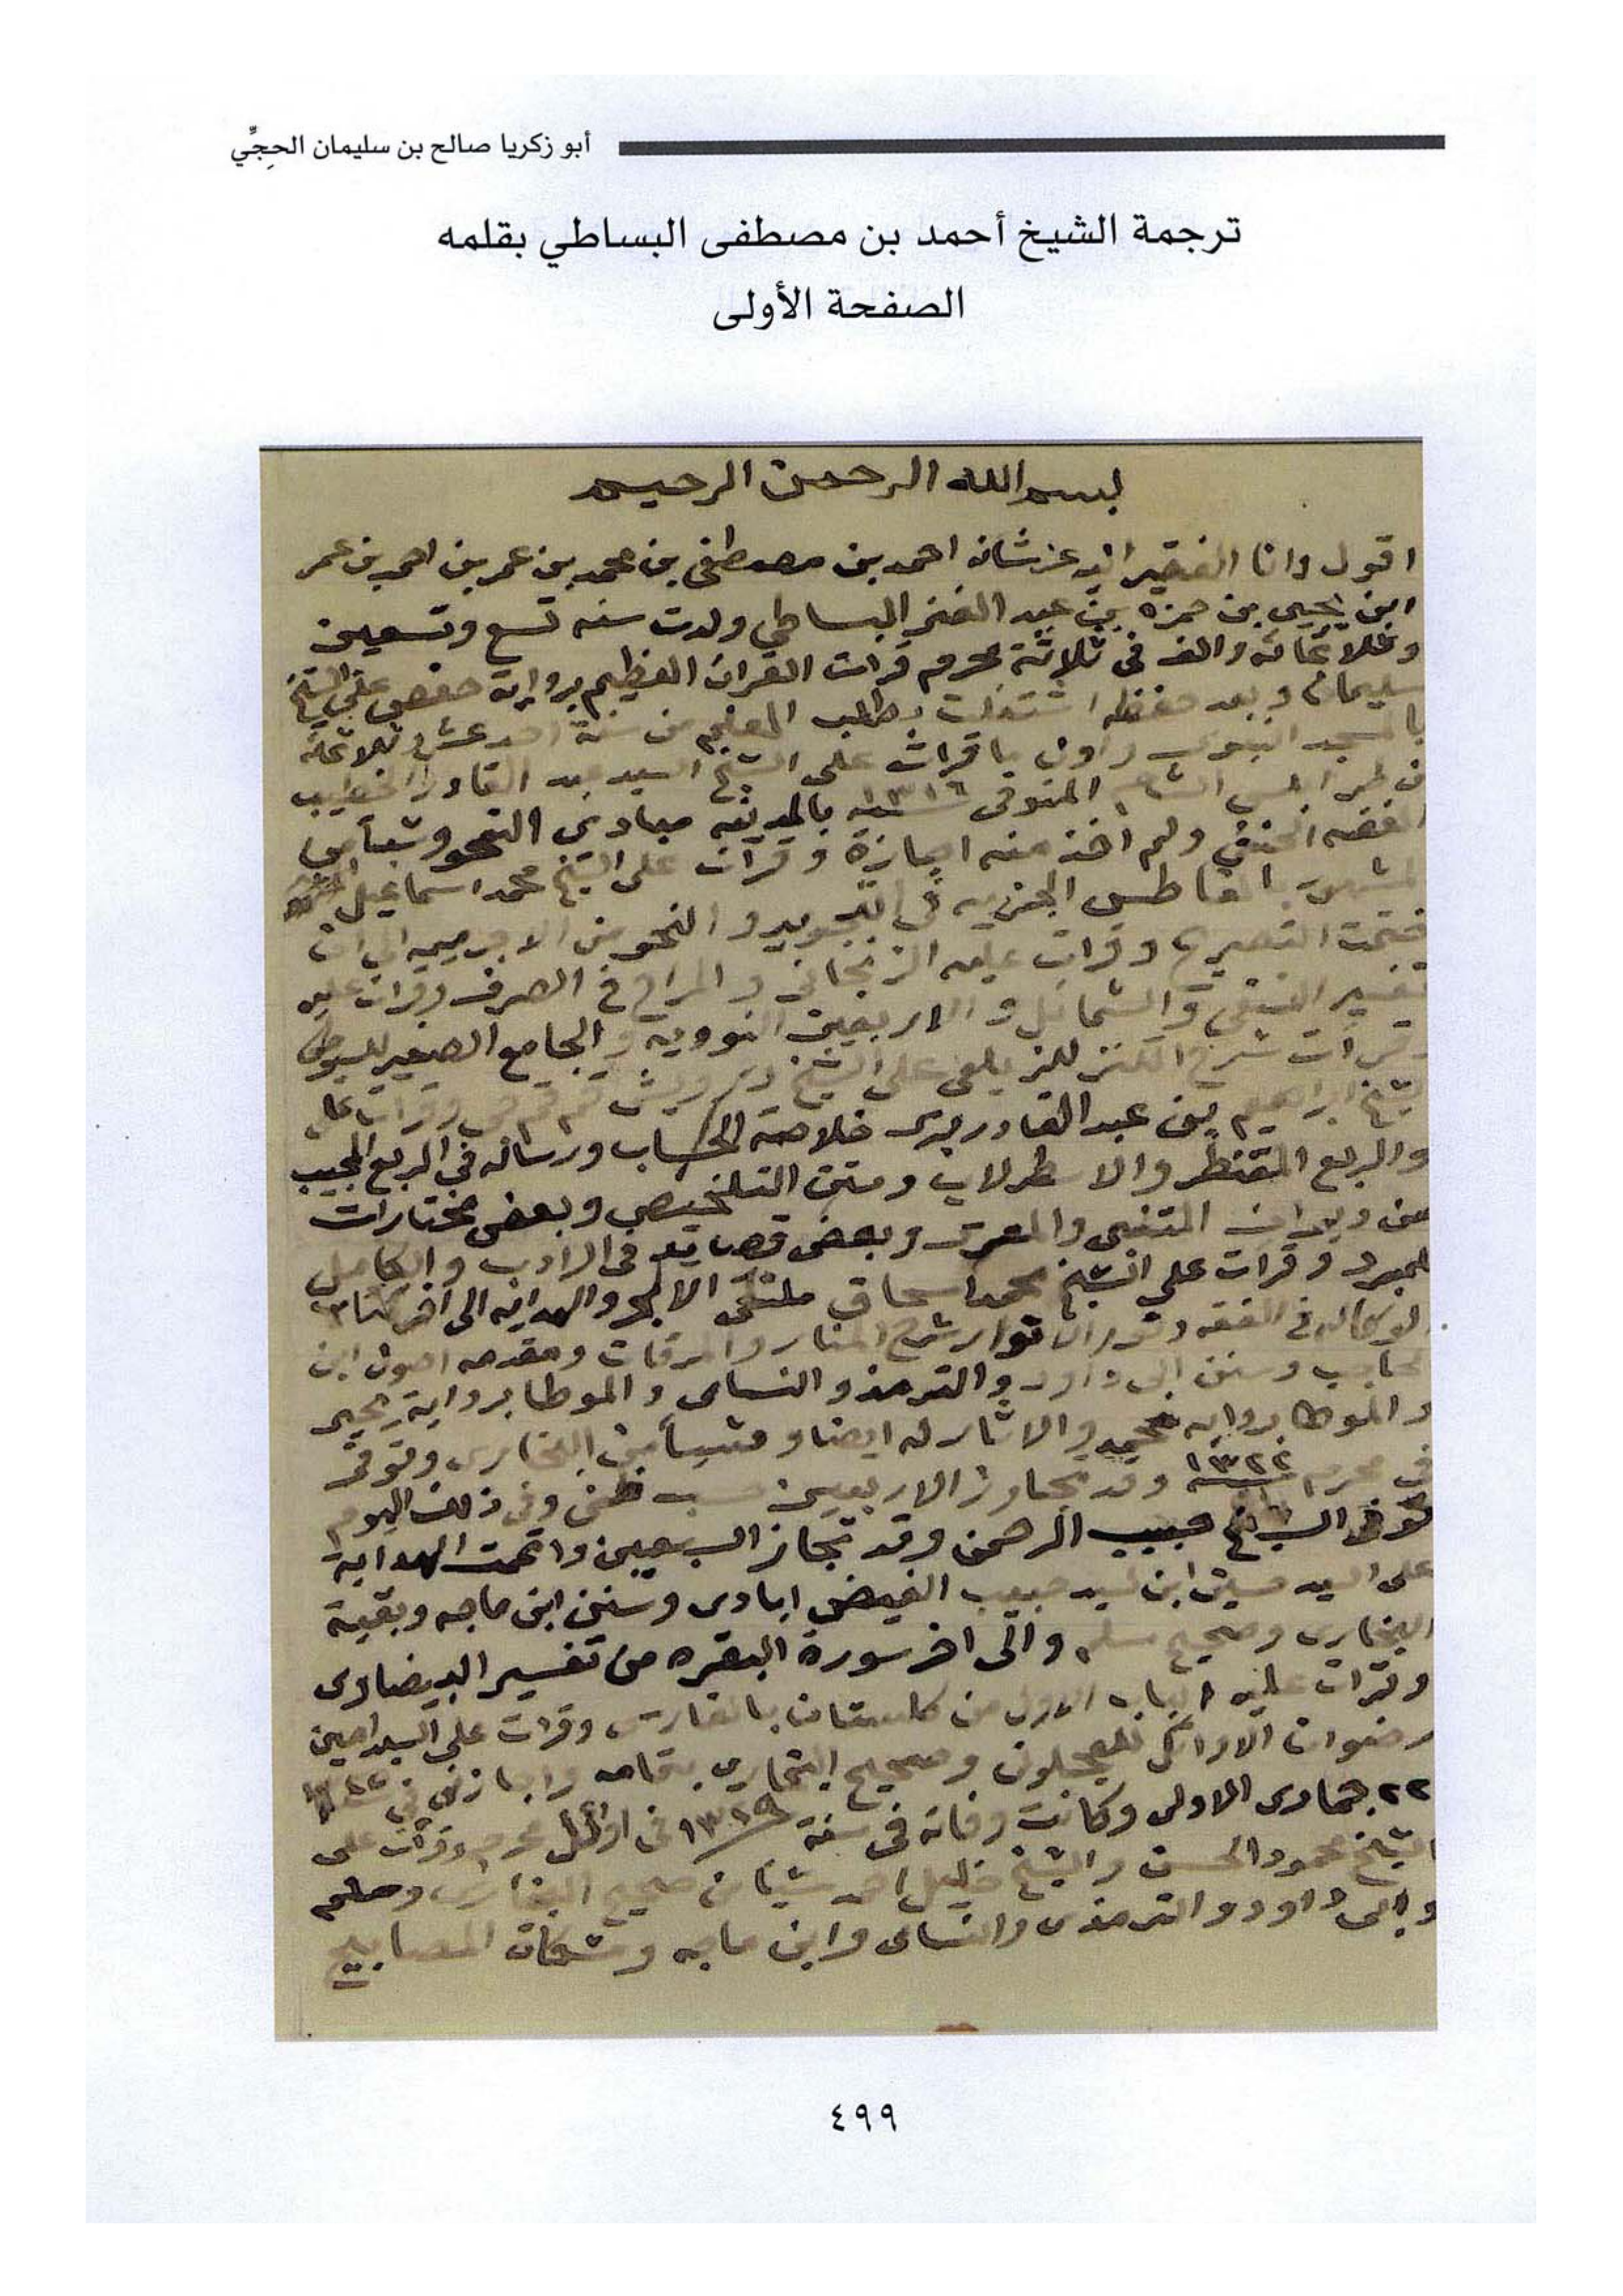 أبو زكريا صالح بن سليمان الحِجِّي
ترجمة الشيخ أحمد بن مصطفى البساطي بقلمه
الصفحة الأولى
بسم الله الرحمن الرحيم
اقول وانا الفقير اليه عز شانه احمد بن مصطفى بن محمد بن عمر بن احمد بن عمر
ابن يحيى بن حمزه بن عبد الغني البساطي ولدت سنه تسع وتسعين
وثلاثمائه والف في ثلاثة محرم قرات القران العظيم برواية حفص على الشيخ
سليمان وبعد حفظه اشتغلت بطلب العلم من سنة احد عشر وثلاثمائة
بالمسجد النبوى واول ما قرات على الشيخ السيد عبد القادر الخطيب
الطرابلسي المتوفى ١٣١٦ سنه بالمدينه مبادئ النحو وشيأ من
الفقه الحنفي ولم اخذ منه اجازة وقرات على الشيخ محمد اسماعيل
الجزريه في التجويد والنحو من الاجروميه الى ان
ختمت التصريح وقرات عليه الزنجاني والمراح في الصرف وقرات عليه
تفسير النسفي والشمائل والاربعين النوويه والجامع الصغير للسيوطي
وقرات شرح الكنز للزيلعى على الشيخ درويش قمقمجي وقرات على
الشيخ ابراهيم بن عبد القادر برى خلاصة الحساب ورساله في الربع المجيب
والربع المقنطر والاسطرلاب ومتن التلخيص وبعض مختارات
من ديوان المتنبى والمعرى وبعض قصايد في الادب والكامل
للمبرد وقرات على الشيخ محمد اسحاق ملتقى الابحر والهدايه الى اخر كتاب
الوكاله في الفقه ونور الانوار شرح المنار والمرقات ومقدمه اصول ابن
الحاجب وسنن ابى داود والترمذ والنساى والموطا برواية يحيى
والموطا بروايه محمد والاثار له ايضا و شيأ من البخارى وتوفى
في محرم ١٣٢٢ وقد تجاوز الاربعين حسب ظني وفي ذلك اليوم
توفى الشيخ حبيب الرحمن وقد تجاز السبعين واتممت الهداية
على السيد حسين ابن السيد حبيب الفيض ابادى وسنن ابن ماجه وبقية
البخارى وصحيح مسلم والى اخر سورة البقره من تفسير البيضاوى
وقرات عليه الباب الاول من كلستان بالفارسى وقرات على السيد امين
رضوان الاوائل للعجلونى وصحيح البخارى بتمامه واجازنى في
٢٢ جمادى الاولى وكانت وفاته في سنة ١٣٢٩ في اوائل محرم وقرات على
الشيخ محمود الحسن والشيخ خليل احمد شيأ من صحيح البخارى ومسلم
وابى داود والترمذى والنساى وابن ماجه ومشكاة المصابيح
٤٩٩